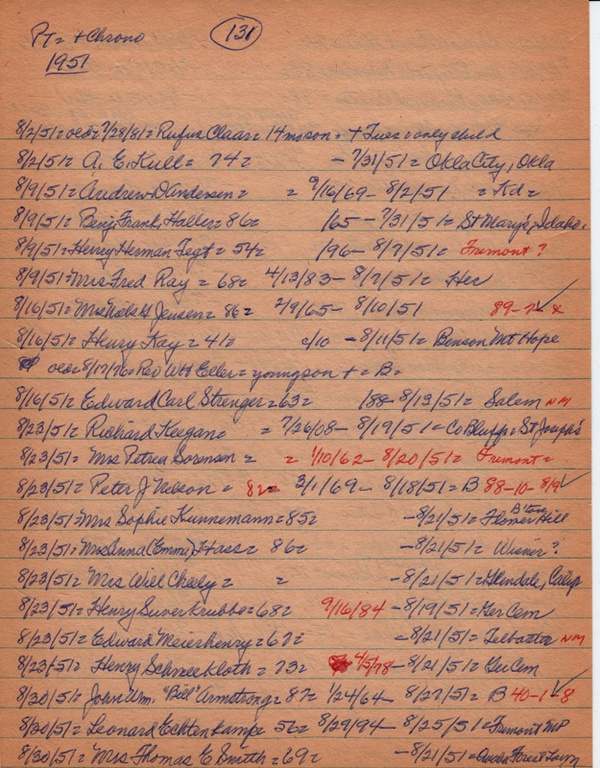 PT= + Chrono 131
1951
8/2/51= OEO= 7/28/81= Rufus Claar= 14 mo son = + Tues = only child
8/2/51= A. E. Kull = 74= - 7/31/51= Okla City, Okla
8/9/51= Andrew D Andersen= = 9/16/69- 8/2/51 =
8/9/51= Benj Frank Haller= 86= /65 - 7/31/51= St Mary's, Idaho.
8/9/51= Henry Herman Tegt = 54= /96 - 8/7/51= Fremont?
8/9/51= Mrs Fred Ray = 68= 4/13/83- 8/7/51= Her
8/16/51= Mrs Niels H Jensen= 86= 2/9/65- 8/10/51 89-7
8/16/51= Henry Kay = 41= c/10 - 8/11/51= Benson Mt Hope
OEO= 8/17/76= Rev WH Eller= young son + = B=
8/16/51= Edward Carl Strenger= 63= /88- 8/13/51= Salem NM
8/23/51= Richard Keegan= = 7/26/08- 8/19/51= Co Bluffs= St Joseph's
8/23/51= Mrs Petrea Sorensen = = 1/10/62- 8/20/51= Fremont=
8/23/51= Peter J Nelson = 82= 3/1/69- 8/18/51= B 88-10- 8/9
8/23/51= Mrs Sophie Kunnemann= 85= - 8/21/51= Flower Hill
8/23/51= Mrs Anna (Emma) Hass= 86= - 8/21/51= Wisner?
8/23/51= Mrs Will Chody= = - 8/21/51= Glendale, Calif
8/23/51= Henry Suverkrubbe= 68= 9/16/84 - 8/19/51= Ger Cem
8/23/51= Edward Meierhenry= 67= - 8/21/51= NM
8/23/51= Henry Schneekloth= 73= 4/5/78- 8/21/51= Ger Cem
8/30/51= John Wm. "Bill" Armstrong= 87= 1/24/64- 8/27/51= B 40-1 8
8/30/51= Leonard Echtenkamp= 56= 8/29/94- 8/25/51= Fremont MP
8/30/51= Mrs Thomas E Smith= 69= - 8/21/51= Omaha Forest Lawn